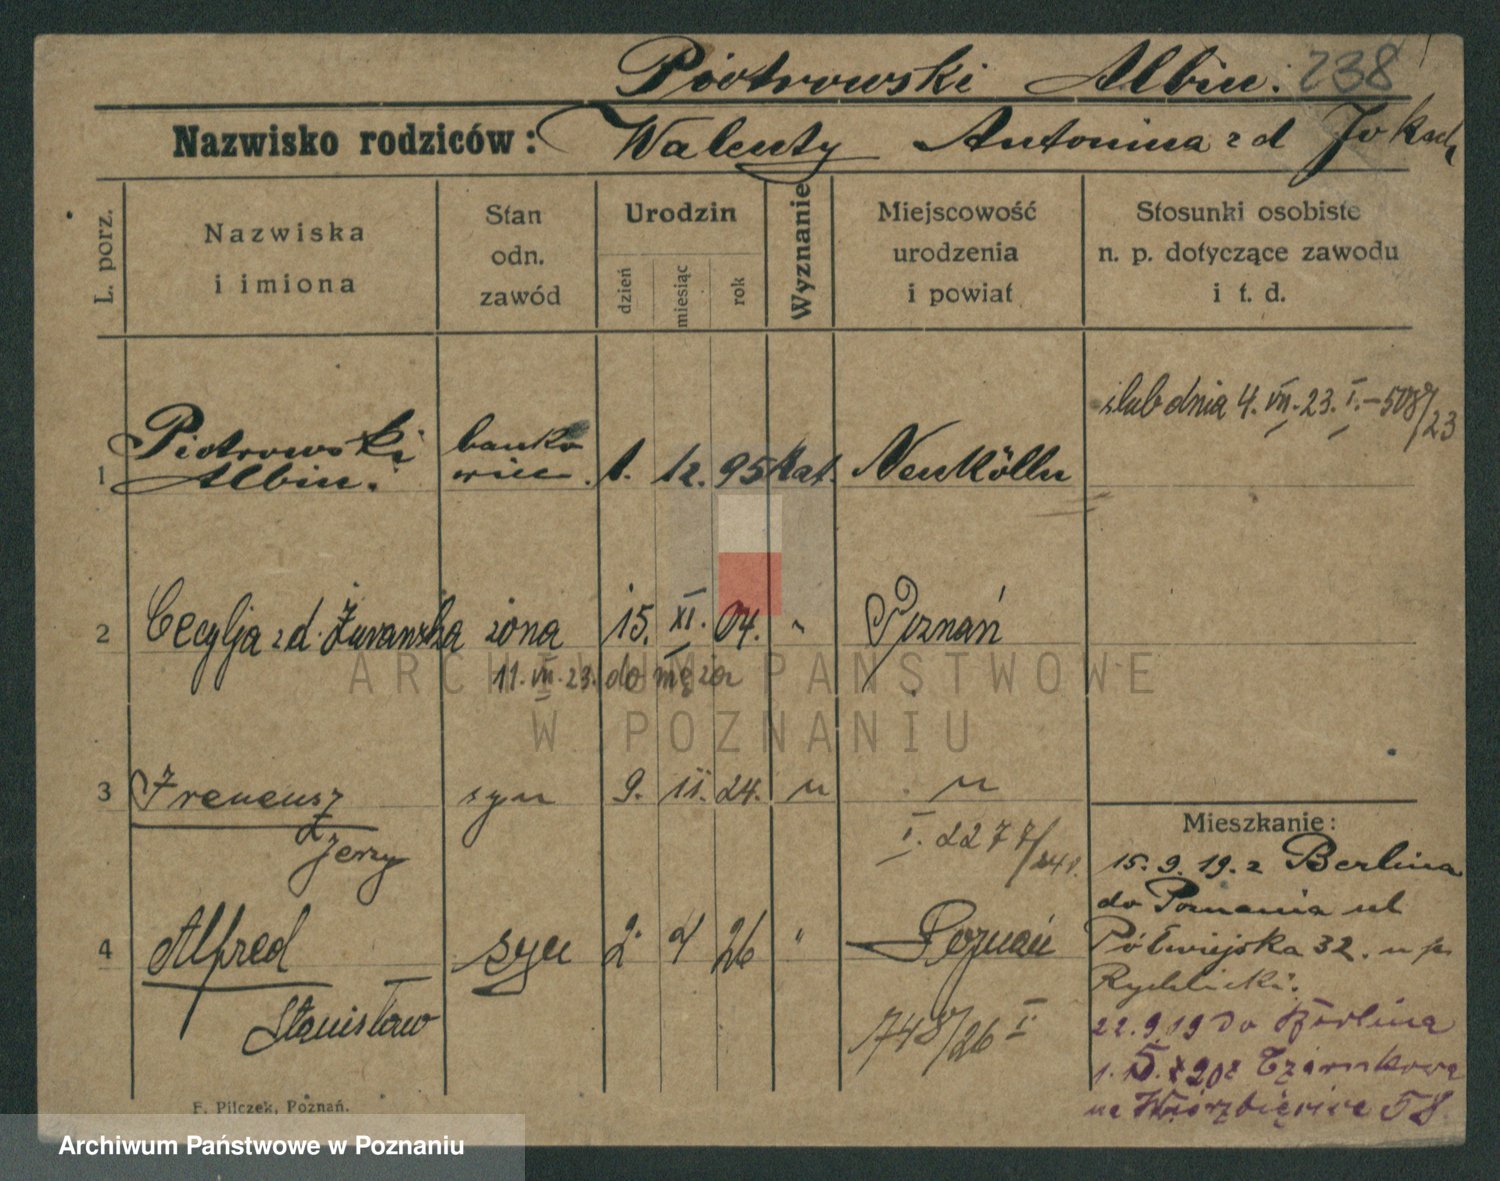 Piotrowski Albin. 238
Nazwisko rodziców: Walenty Antonina z d
L. porz.
Nazwiska
i imiona
Stan
odn.
zawód
Urodzin
dzień
miesiąc
rok
Wyznanie
Miejscowość
urodzenia
i powiat
Stosunki osobiste
n. p. dotyczące zawodu
i t. d.
ślub dnia 4. VII. 23. I. - 508/23
1 Piotrowski Albin. bankowiec. 1. 12. 95 kat. Neukölln
2 Cecylja z d. żona 15. XI. 04. " Poznań
11. VII. 23. do męża
3 Ireneusz syn 9. II. 24. " "
Jerzy
I. 2277/24
4 Alfred syn 2 4 26 " Poznań
Stanisław
748/26 I
Mieszkanie:
15. 9. 19. z Berlina
do Poznania ul
Półwiejska 32. u p.
Rychlicki.
22.9.19 do Berlina
1. 20 z Czarnkowa
na Wierzbięcice 58
F. Pilczek, Poznań.
ARCHIWUM PAŃSTWOWE
W POZNANIU
Archiwum Państwowe w Poznaniu